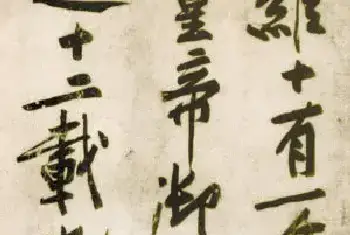 維十有一
皇帝御
十二載